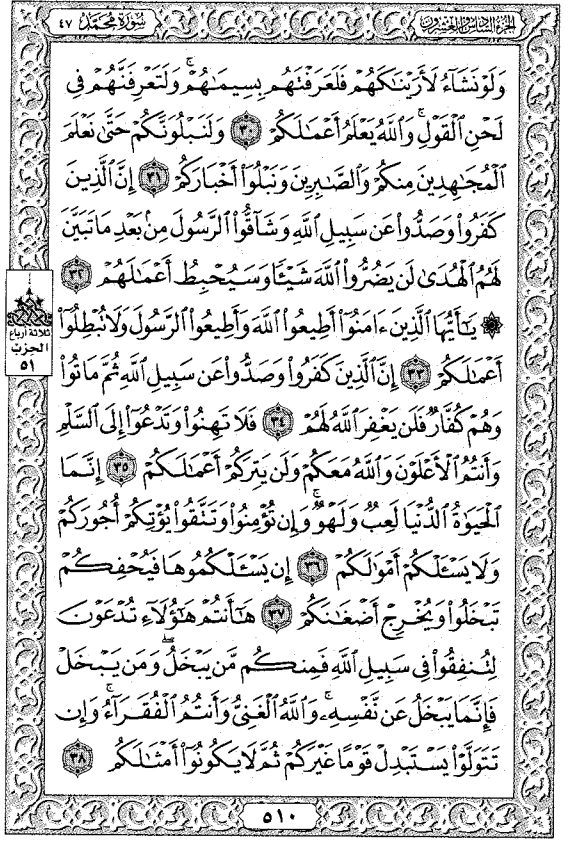 الجزء السادس والعشرون
سورة محمد ٤٧
وَلَوْ نَشَآءُ لَأَرَيْنَـٰكَهُمْ فَلَعَرَفْتَهُم بِسِيمَـٰهُمْ ۚ وَلَتَعْرِفَنَّهُمْ فِى
لَحْنِ ٱلْقَوْلِ ۚ وَٱللَّهُ يَعْلَمُ أَعْمَـٰلَكُمْ ٣٠ وَلَنَبْلُوَنَّكُمْ حَتَّىٰ نَعْلَمَ
ٱلْمُجَـٰهِدِينَ مِنكُمْ وَٱلصَّـٰبِرِينَ وَنَبْلُوَا۟ أَخْبَارَكُمْ ٣١ إِنَّ ٱلَّذِينَ
كَفَرُوا۟ وَصَدُّوا۟ عَن سَبِيلِ ٱللَّهِ وَشَآقُّوا۟ ٱلرَّسُولَ مِنۢ بَعْدِ مَا تَبَيَّنَ
لَهُمُ ٱلْهُدَىٰ لَن يَضُرُّوا۟ ٱللَّهَ شَيْـًٔا وَسَيُحْبِطُ أَعْمَـٰلَهُمْ ٣٢
۞ يَـٰٓأَيُّهَا ٱلَّذِينَ ءَامَنُوٓا۟ أَطِيعُوا۟ ٱللَّهَ وَأَطِيعُوا۟ ٱلرَّسُولَ وَلَا تُبْطِلُوٓا۟
أَعْمَـٰلَكُمْ ٣٣ إِنَّ ٱلَّذِينَ كَفَرُوا۟ وَصَدُّوا۟ عَن سَبِيلِ ٱللَّهِ ثُمَّ مَاتُوا۟
وَهُمْ كُفَّارٌ فَلَن يَغْفِرَ ٱللَّهُ لَهُمْ ٣٤ فَلَا تَهِنُوا۟ وَتَدْعُوٓا۟ إِلَى ٱلسَّلْمِ
وَأَنتُمُ ٱلْأَعْلَوْنَ وَٱللَّهُ مَعَكُمْ وَلَن يَتِرَكُمْ أَعْمَـٰلَكُمْ ٣٥ إِنَّمَا
ٱلْحَيَوٰةُ ٱلدُّنْيَا لَعِبٌ وَلَهْوٌ ۚ وَإِن تُؤْمِنُوا۟ وَتَتَّقُوا۟ يُؤْتِكُمْ أُجُورَكُمْ
وَلَا يَسْـَٔلْكُمْ أَمْوَٰلَكُمْ ٣٦ إِن يَسْـَٔلْكُمُوهَا فَيُحْفِكُمْ
تَبْخَلُوا۟ وَيُخْرِجْ أَضْغَـٰنَكُمْ ٣٧ هَـٰٓأَنتُمْ هَـٰٓؤُلَآءِ تُدْعَوْنَ
لِتُنفِقُوا۟ فِى سَبِيلِ ٱللَّهِ فَمِنكُم مَّن يَبْخَلُ ۖ وَمَن يَبْخَلْ
فَإِنَّمَا يَبْخَلُ عَن نَّفْسِهِۦ ۚ وَٱللَّهُ ٱلْغَنِىُّ وَأَنتُمُ ٱلْفُقَرَآءُ ۚ وَإِن
تَتَوَلَّوْا۟ يَسْتَبْدِلْ قَوْمًا غَيْرَكُمْ ثُمَّ لَا يَكُونُوٓا۟ أَمْثَـٰلَكُم ٣٨
ثلاثة أرباع
الحزب
٥١
٥١٠